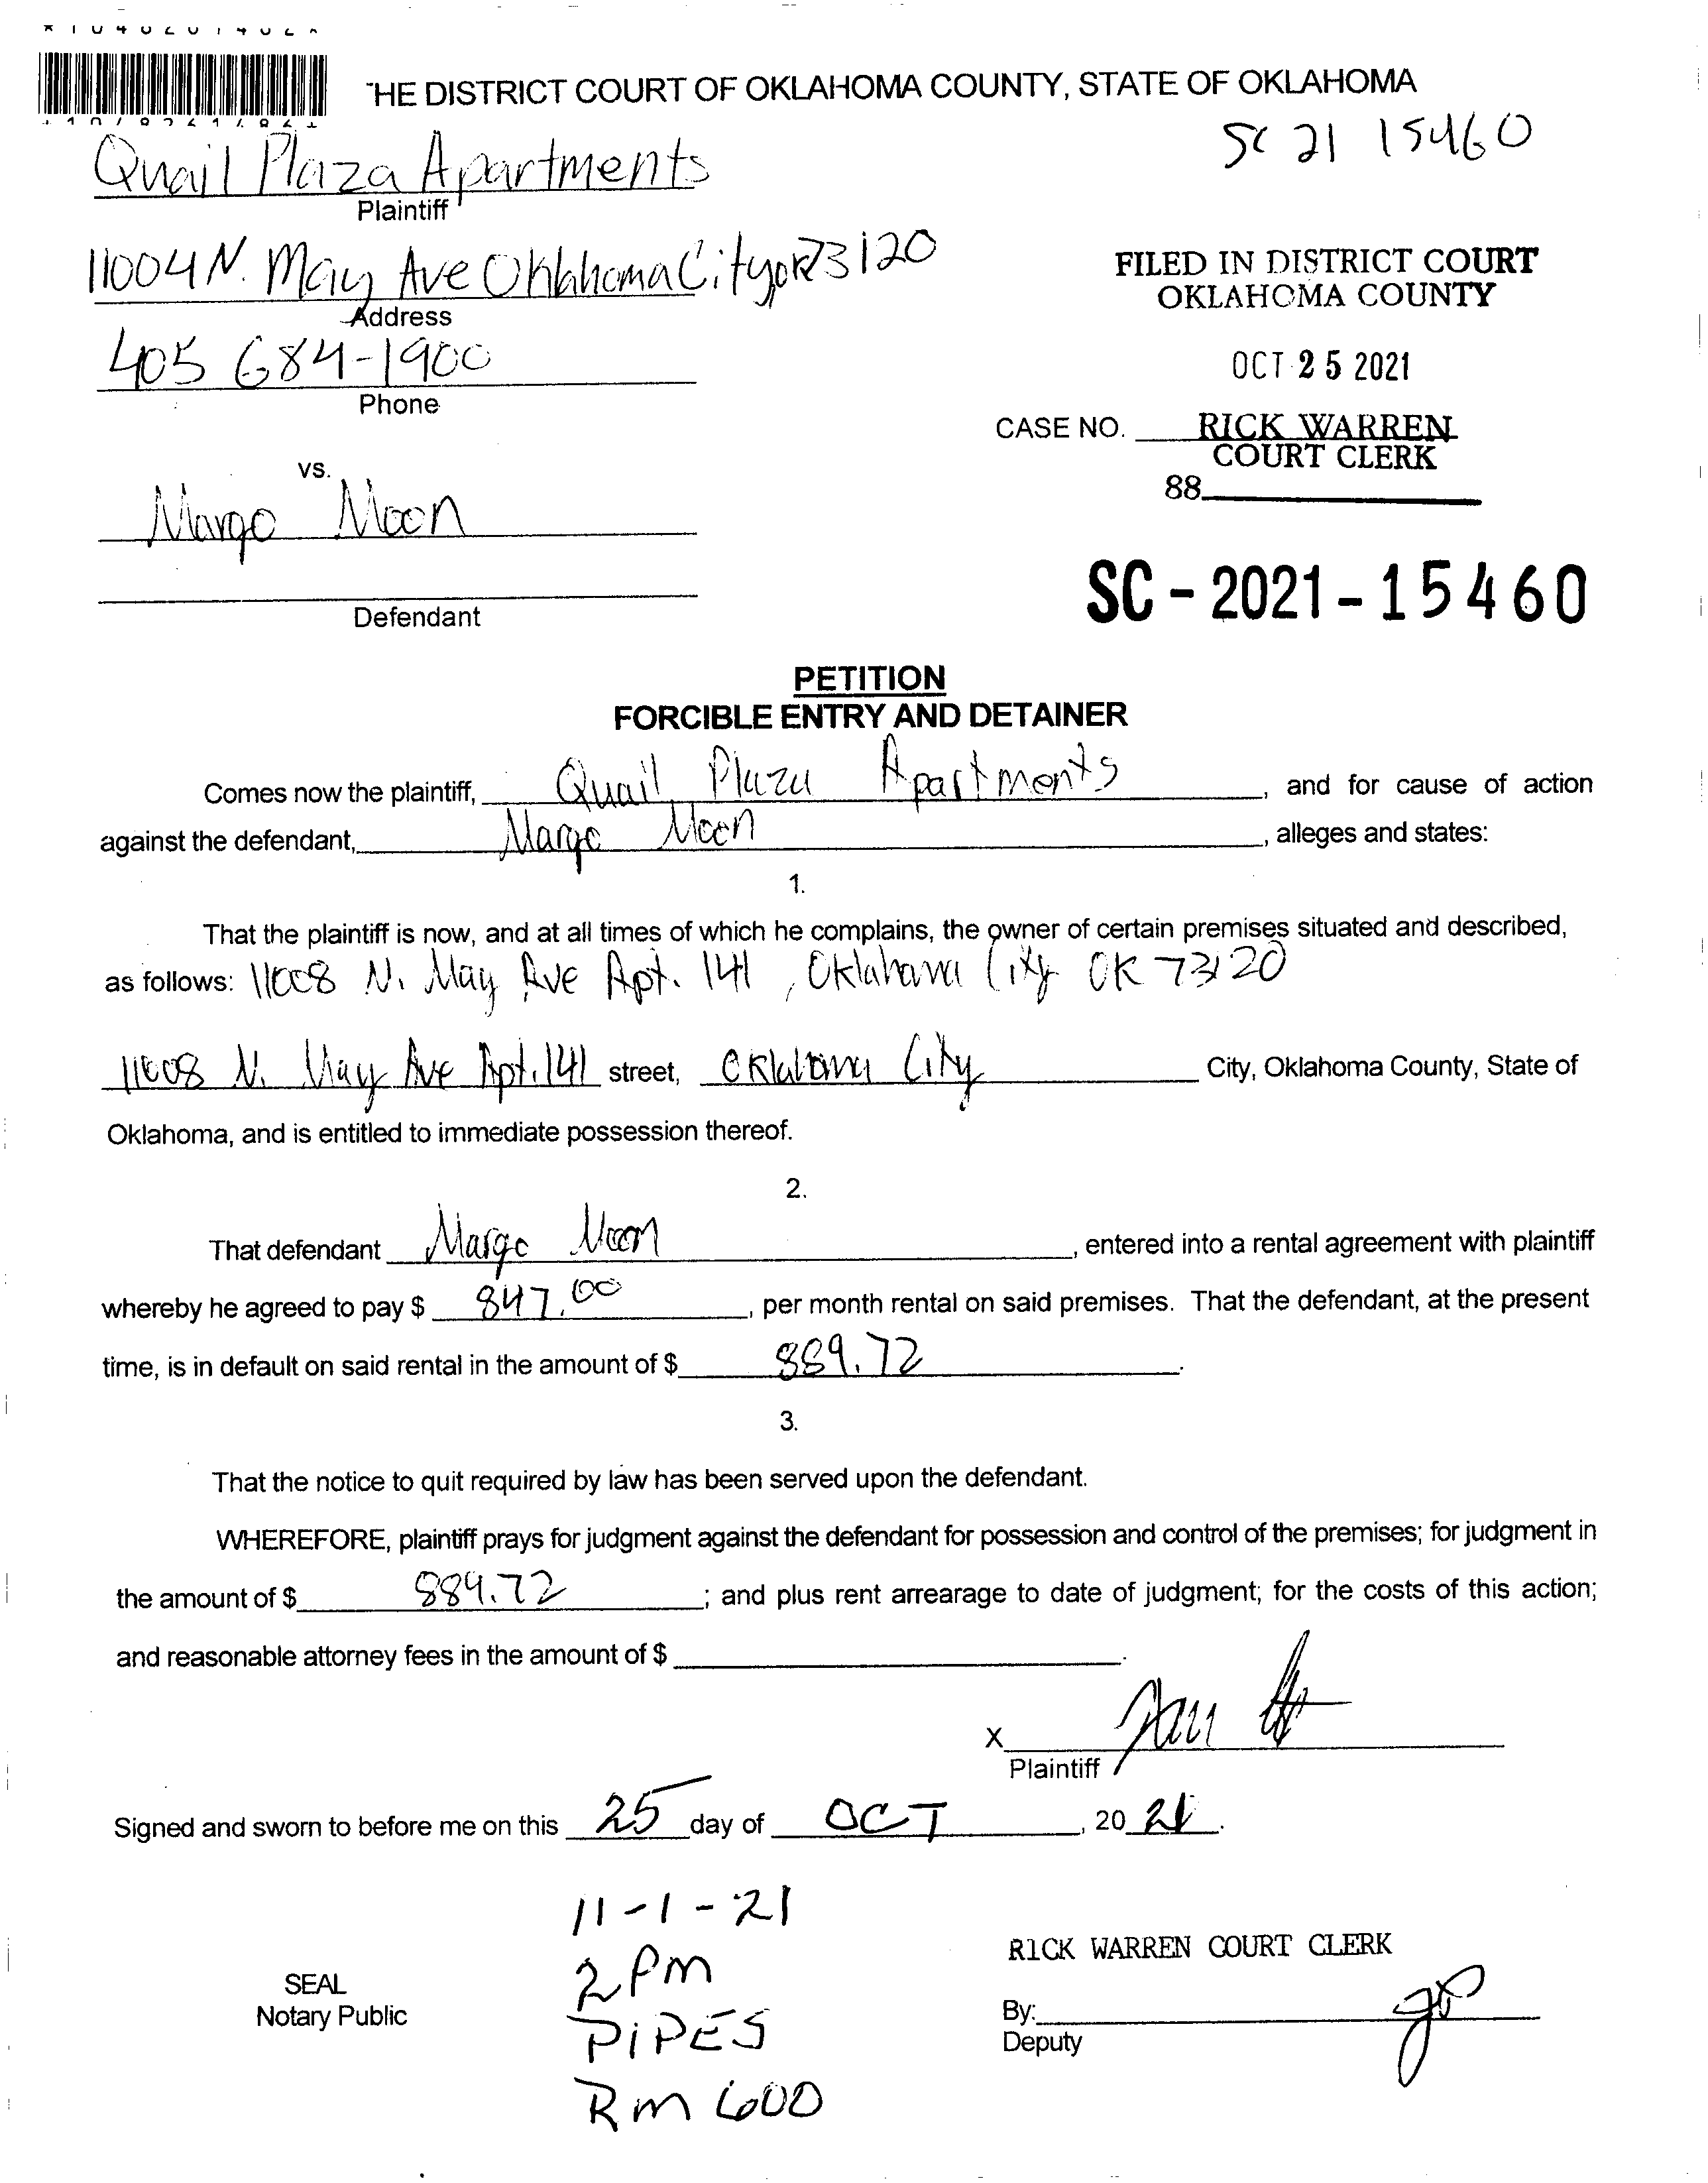 THE DISTRICT COURT OF OKLAHOMA COUNTY, STATE OF OKLAHOMA
SC 21 15460
Quail Plaza Apartments
Plaintiff
11004 N. May Ave Oklahoma City OK 73120
Address
405 684-1900
Phone
FILED IN DISTRICT COURT
OKLAHOMA COUNTY
OCT 25 2021
CASE NO. RICK WARREN
COURT CLERK
88
vs.
Margo Moon
Defendant
SC - 2021 - 15460
PETITION
FORCIBLE ENTRY AND DETAINER
Comes now the plaintiff, Quail Plaza Apartments, and for cause of action
against the defendant, Margo Moon, alleges and states:
1.
That the plaintiff is now, and at all times of which he complains, the owner of certain premises situated and described,
as follows: 11008 N. May Ave Apt. 141, Oklahoma City OK 73120
11008 N. May Ave Apt. 141 street, Oklahoma City City, Oklahoma County, State of
Oklahoma, and is entitled to immediate possession thereof.
2.
That defendant Margo Moon, entered into a rental agreement with plaintiff
whereby he agreed to pay $ 847.00, per month rental on said premises. That the defendant, at the present
time, is in default on said rental in the amount of $ 889.72.
3.
That the notice to quit required by law has been served upon the defendant.
WHEREFORE, plaintiff prays for judgment against the defendant for possession and control of the premises; for judgment in
the amount of $ 889.72; and plus rent arrearage to date of judgment; for the costs of this action;
and reasonable attorney fees in the amount of $ .
X
Plaintiff
Signed and sworn to before me on this 25 day of OCT, 20 21.
11-1-21
2 PM
PIPES
Rm 600
SEAL
Notary Public
RICK WARREN COURT CLERK
By:
Deputy